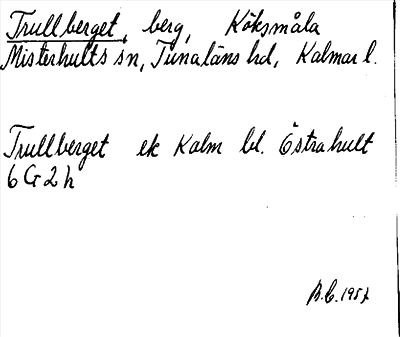 Trullberget, berg, Köksmåla
Misterhults sn, Tunaläns hd, Kalmar l.
Trullberget ek Kalm bl. Östrahult
6 G 2 h
B.C. 1957